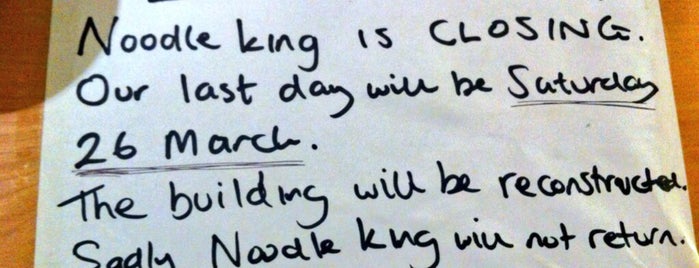 Noodle king is CLOSING.
Our last day will be Saturday
26 March.
The building will be reconstructed.
Sadly Noodle king will not return.